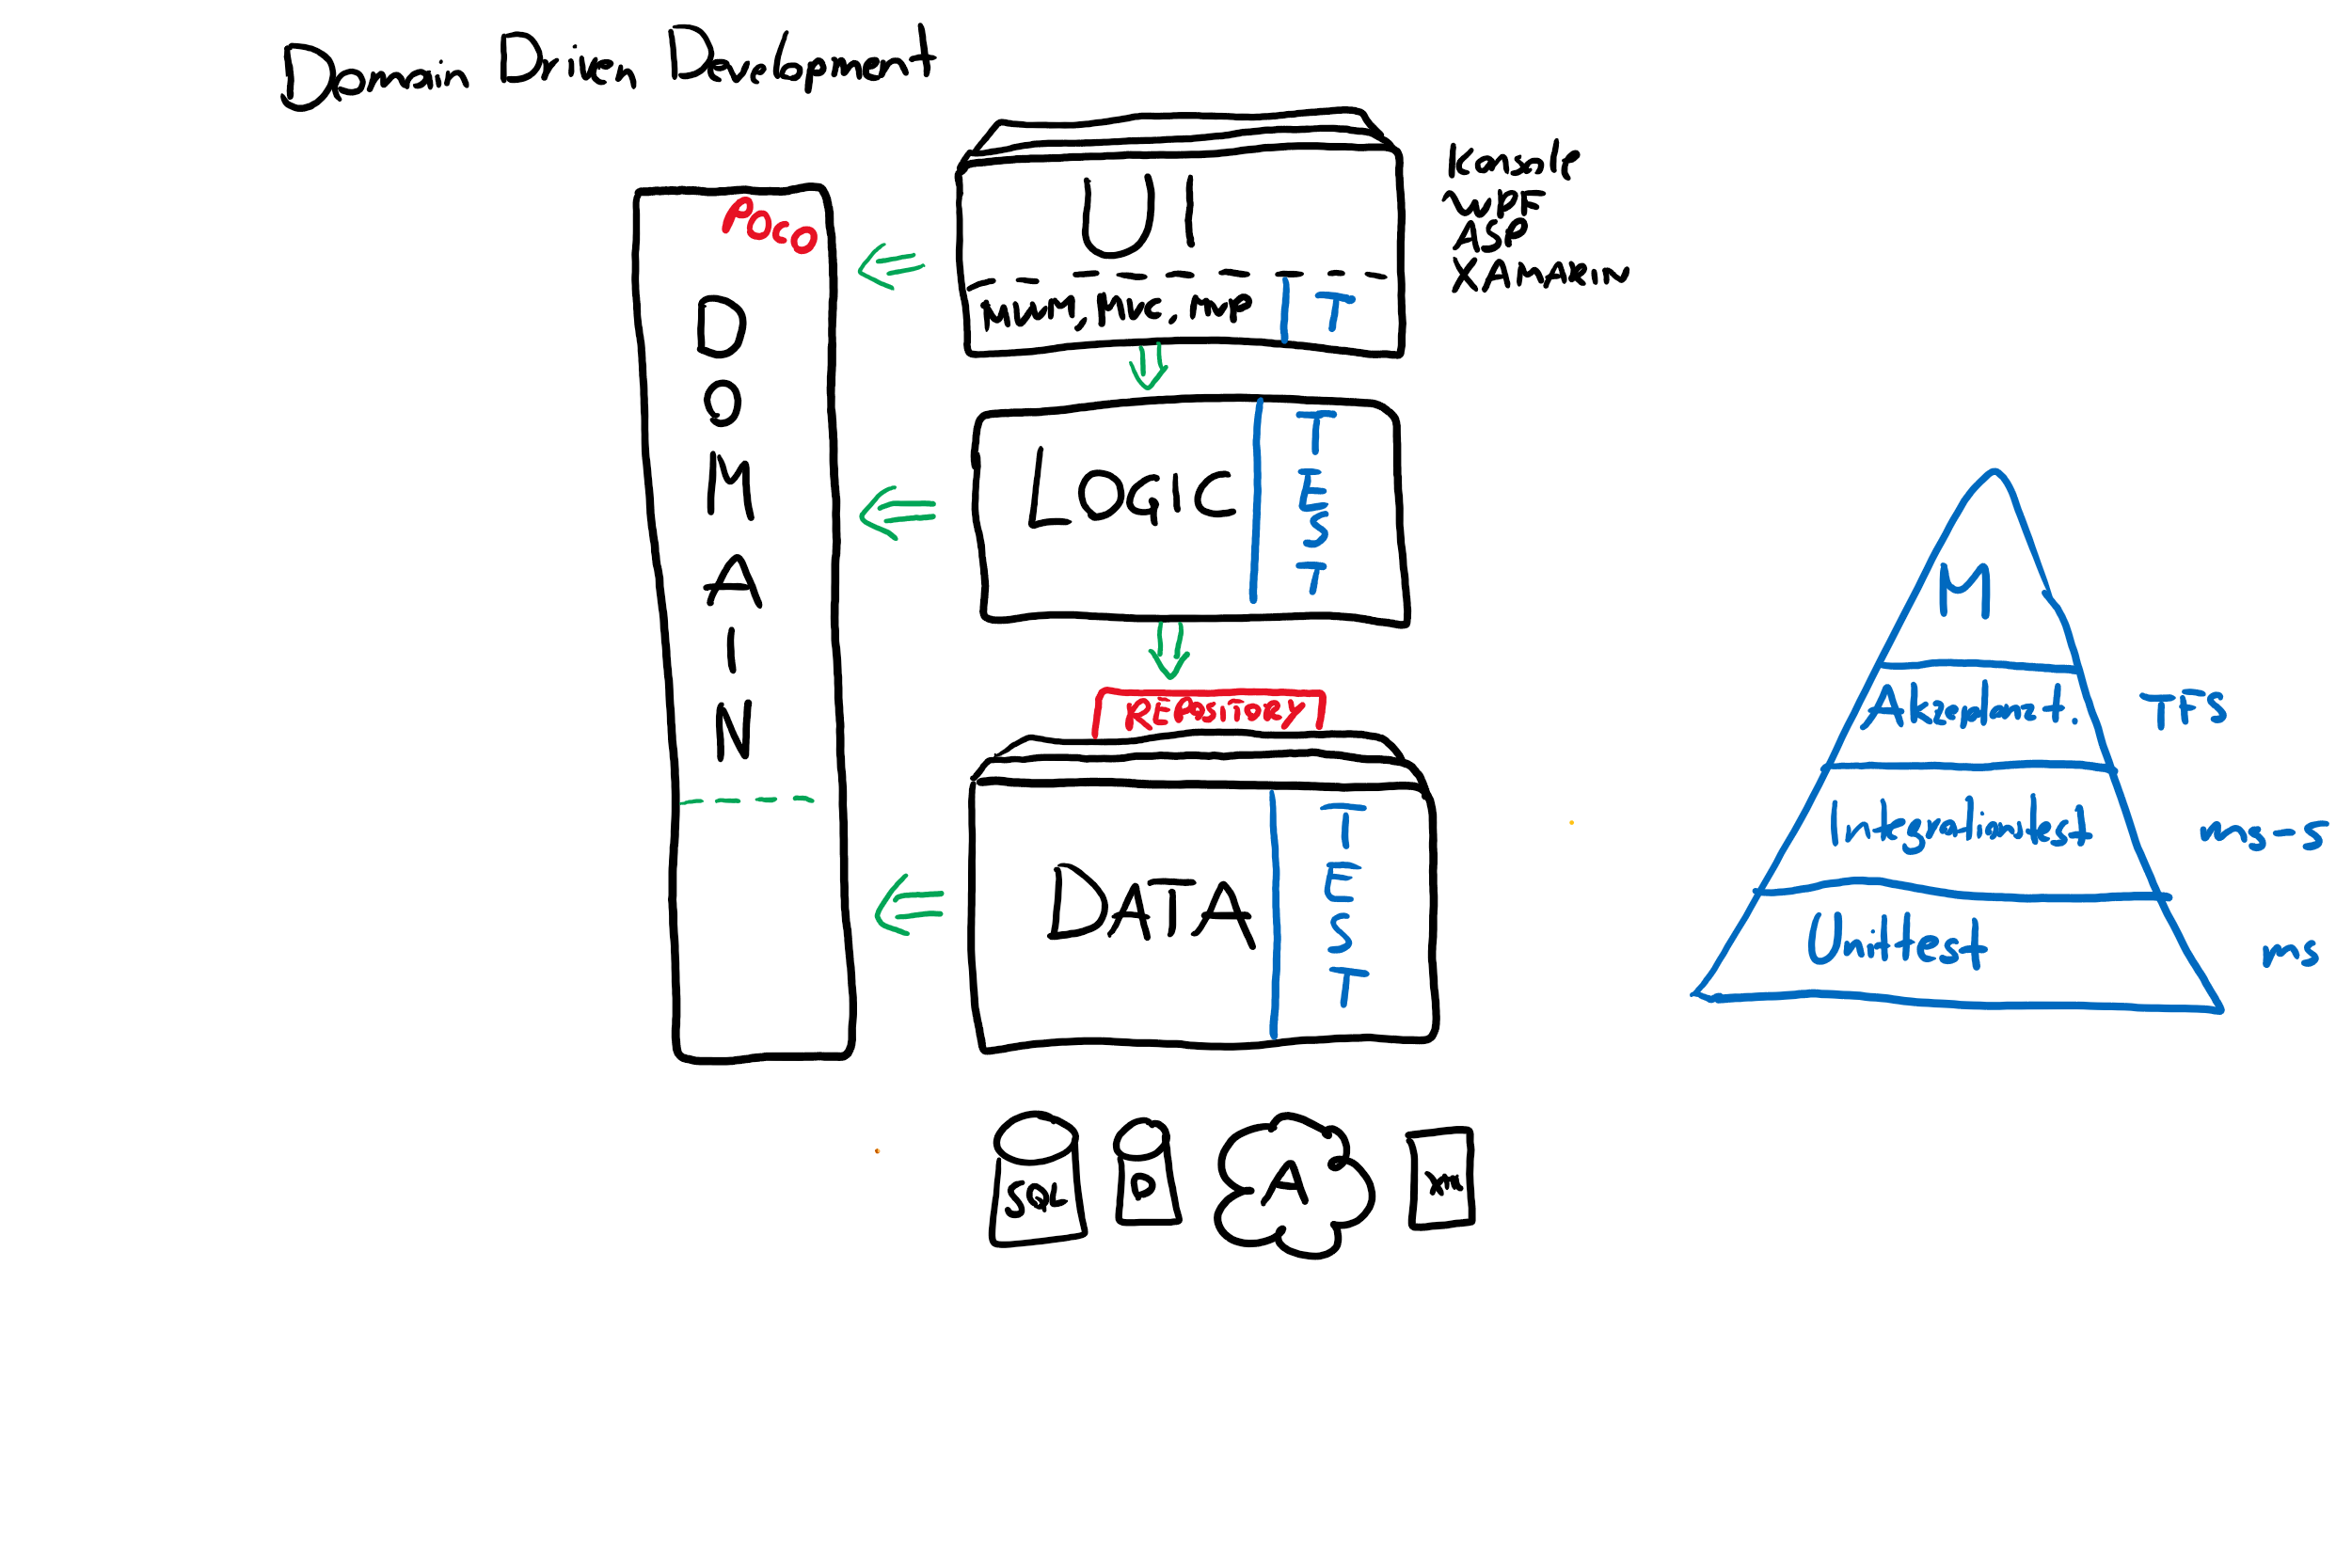 Domain Driven Development
POCO
DOMAIN
UI
MVVM, MVC, MVP
T
Konsole
WPF
ASP
XAMARIN
LOGIC
TEST
REPOSITORY
DATA
TEST
SQL
D
A
XML
M
Akzeptanzt.
TFS
Integrationtest
ms-s
Unittest
ms